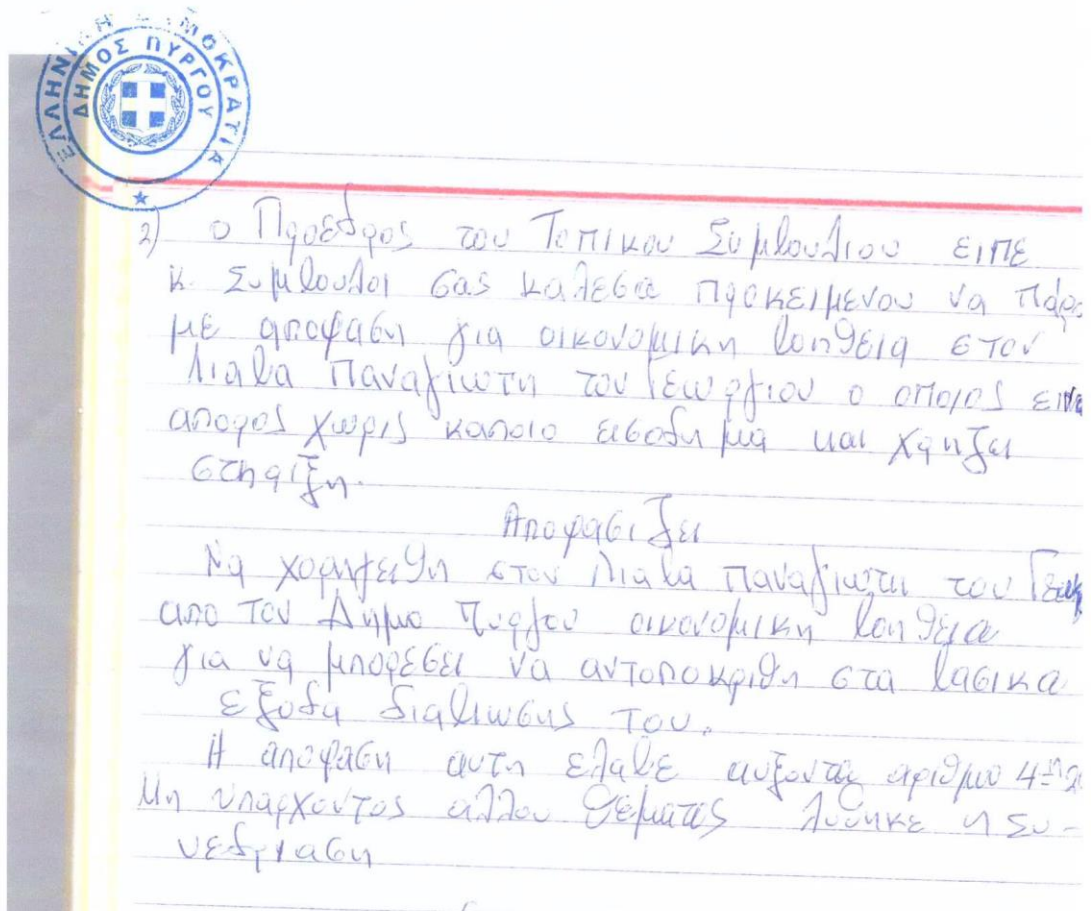 ΕΛΛΗΝΙΚΗ ΔΗΜΟΚΡΑΤΙΑ
ΔΗΜΟΣ ΠΥΡΓΟΥ
2) ο Προεδρος του Τοπικου Συμβουλιου ειπε
κ. Συμβουλοι σας καλεσα προκειμενου να παρ
με αποφαση για οικονομικη βοηθεια στον
Λιαβα Παναγιωτη του Γεωργιου ο οποιος ειναι
απορος χωρις καποιο εισοδημα και χρηζει
στηριξη.
Αποφασιζει
Να χορηγειθη στον Λιαβα παναγιωτη του Γεωρ
απο τον Δημο Πυργου οικονομικη βοηθεια
για να μπορεσει να αντοποκριθη στα βασικα
εξοδα διαβιωσης του.
Η αποφαση αυτη ελαβε αυξοντα αριθμο 4-
Μη υπαρχοντος αλλου θεματος λυθηκε η Συ-
νεδριαση